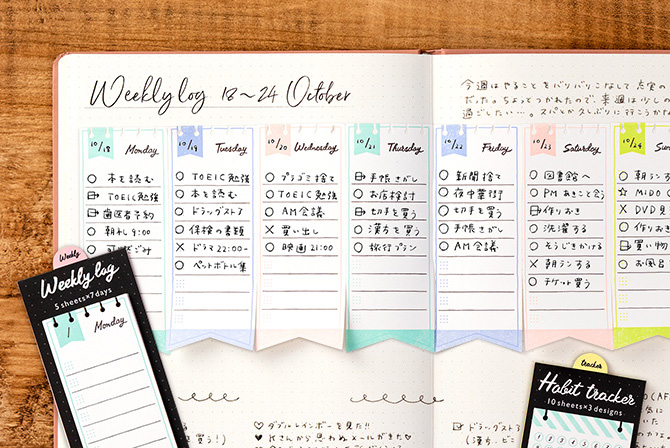 Weekly log 18〜24 October
今週はやることをバリバリこなして
だった。ちょっとつかれたので、来週は少し
過ごしたい…。スパとか久しぶりに行こうかな
10/18 Monday
本を読む
TOEIC勉強
歯医者予約
朝礼 9:00
10/19 Tuesday
TOEIC勉強
本を読む
ドラッグストア
保険の書類
ドラマ 22:00-
ペットボトル集
10/20 Wednesday
プラゴミ捨て
TOEIC勉強
AM会議
買い出し
映画 21:00
10/21 Thursday
手帳さがし
お店検討
切手を買う
漢方を買う
旅行プラン
10/22 Friday
新聞捨て
夜中華街
切手を買う
手帳さがし
AM会議
10/23 Saturday
図書館へ
PM あきこと会う
作りおき
洗濯する
そうじきかける
朝ランする
チケット買う
10/24 Sun
朝ラン
MIDO
DVD
作りおき
買い物
お風呂
Weekly
Weekly log
5sheets×7days
/ Monday
ダブルレインボーを見た!!
tracker
Habit tracker
10sheets×3designs
ドラッグスト